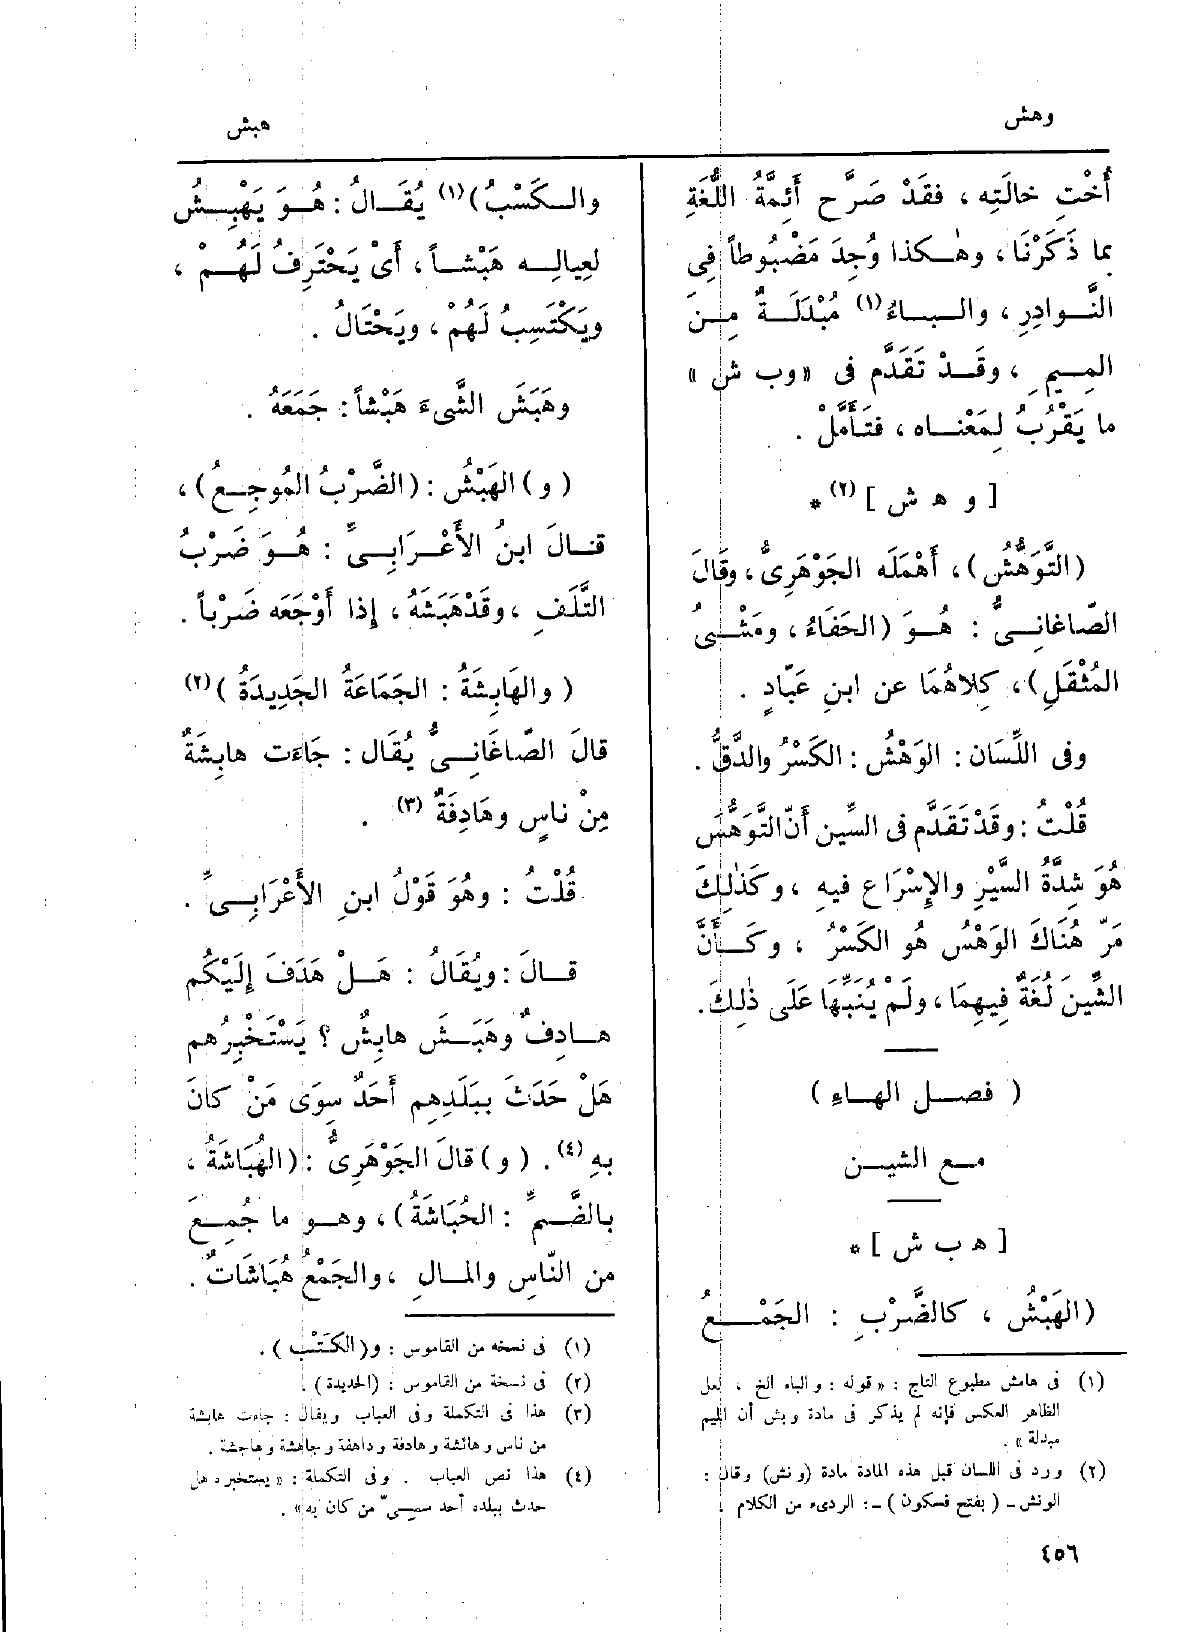 وهش
هبش
أُخْتِ خالَتِه ، فقَدْ صَرَّح أَئِمَّةُ اللُّغَةِ
بما ذَكَرْنَا ، وهٰكذا وُجِدَ مَضْبُوطاً فِى
النَّوادِرِ ، والبـاءُ(١) مُبْدَلَةٌ مِنَ
المِيمِ ، وقَدْ تَقَدَّم فى «وب ش»
ما يَقْرُبُ لِمَعْناه ، فتَأَمَّلْ .
[ و ه ش ] (٢) *
(التَّوَهُّشُ) ، أَهْمَلَه الجَوْهَرِىُّ ، وقَالَ
الصّاغانِىُّ : هُوَ (الحَفَاءُ ، ومَشْىُ
المُثْقَلِ) ، كِلاهُمَا عن ابنِ عَبّادٍ .
وفى اللِّسَان : الوَهْشُ : الكَسْرُ والدَّقُّ .
قُلْتُ : وقَدْ تَقَدَّم فى السِّين أَنّ التَّوَهُّسَ
هُوَ شِدَّةُ السَّيْرِ والإِسْرَاع فيهِ ، وكَذٰلِكَ
مَرّ هُنَاكَ الوَهْسُ هُو الكَسْرُ ، وكَأَنَّ
الشِّينَ لُغَةٌ فِيهِمَا ، ولَمْ يُنَبِّهَا عَلَى ذٰلِكَ .
( فصل الهاءِ )
مع الشين
[ ه ب ش ] *
(الهَبْشُ ، كالضَّرْبِ : الجَمْعُ
(١) فى هامش مطبوع التاج : « قوله : والباء الخ ، لعل
الظاهر العكس فإنه لم يذكر فى مادة وبش أن الميم
مبدلة » .
(٢) ورد فى اللسان قبل هذه المادة مادة (ونش) وقال :
الونش ـ ( بفتح فسكون ) ـ : الردىء من الكلام
٤٥٦
والكَسْبُ)(١) يُقَالُ : هُوَ يَهْبِشُ
لعِيالِه هَبْشاً ، أَىْ يَحْتَرِفُ لَهُمْ ،
ويَكْتَسِبُ لَهُمْ ، ويَحْتَالُ .
وهَبَشَ الشَّىءَ هَبْشاً : جَمَعَهُ .
( و ) الهَبْشُ : (الضَّرْبُ المُوجِعُ) ،
قالَ ابنُ الأَعْرَابِىّ : هُوَ ضَرْبُ
التَّلَفِ ، وقَدْ هَبَشَهُ ، إِذا أَوْجَعَه ضَرْباً .
( والهَابِشَةُ : الجَمَاعَةُ الجَدِيدَةُ ) (٢)
قالَ الصّاغَانِىُّ يُقَال : جَاءَت هابِشَةٌ
مِنْ ناسٍ وهَادِفَةٌ (٣) .
قُلْتُ : وهُوَ قَوْلُ ابنِ الأَعْرَابِىِّ .
قالَ : ويُقَالُ : هَلْ هَدَفَ إِلَيْكُم
هادِفٌ وهَبَشَ هابِشٌ ؟ يَسْتَخْبِرُهم
هَلْ حَدَثَ ببَلَدِهِم أَحَدٌ سِوَى مَنْ كانَ
بهِ (٤) . ( و ) قالَ الجَوْهَرِىُّ : (الهُبَاشَةُ ،
بالضَّمِّ : الحُبَاشَةُ) ، وهو ما جُمِعَ
من النّاسِ والمالِ ، والجَمْعُ هُبَاشَاتٌ .
(١) فى نسخه من القاموس : و( الكَتْب ) .
(٢) فى نسخة من القاموس : (الحديدة) .
(٣) هذا فى التكملة وفى العباب ويقال : جاءت هابشة
من ناس وهائشة وهادفة وداهفة وجاهشة وهاجشة .
(٤) هذا نص العباب . وفى التكملة : « يستخبره هل
حدث ببلده أحد سمىّ من كان به » .